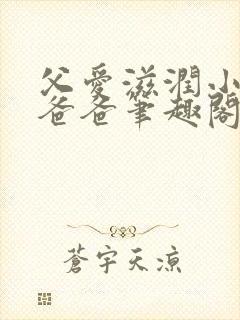 父愛滋潤小
爸爸筆趣閣
蒼宇天涼